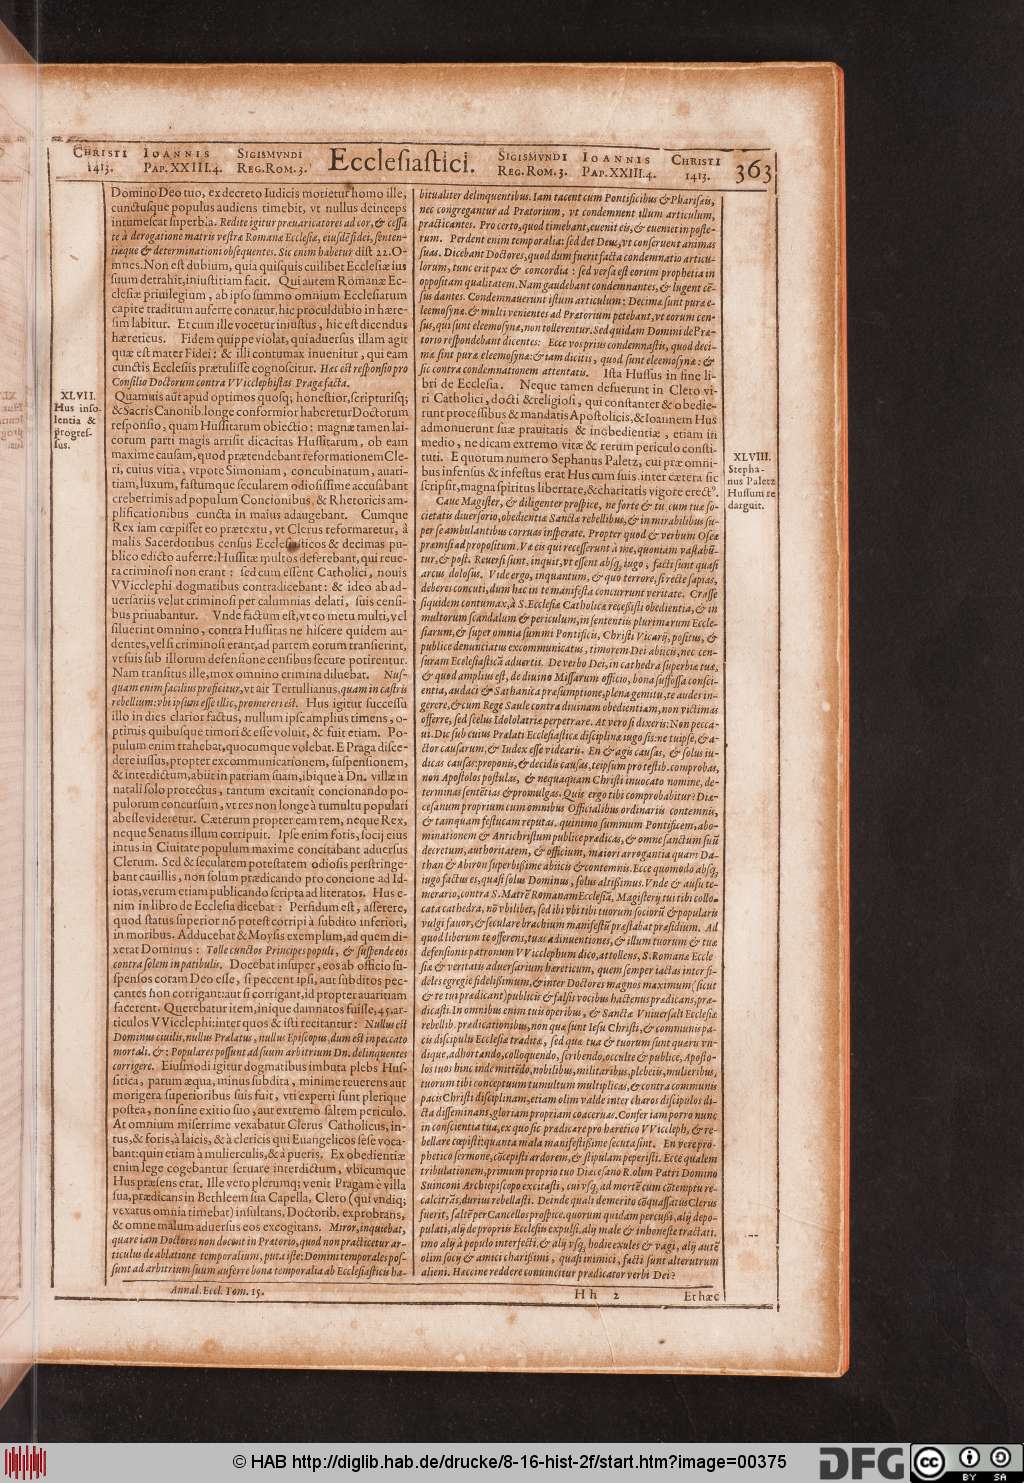 CHRISTI 1413.
IOANNIS PAP. XXIII. 4.
SIGISMVNDI REG. ROM. 3.
Ecclesiastici.
SIGISMVNDI REG. ROM. 3.
IOANNIS PAP. XXIII. 4.
CHRISTI 1413.
363
Domino Deo tuo, ex decreto Iudicis morietur homo ille,
cunctusque populus audiens timebit, vt nullus deinceps
intumescat superbia. Redite igitur præuaricatores ad cor, & cessa
te à derogatione matris vestræ Romanæ Ecclesiæ, eiusdẽ fidei, senten-
tiæque & determinationi obsequentes. Sic enim habetur dist 22. O-
mnes. Non est dubium, quia quisquis cuilibet Ecclesiæ ius
suum detrahit, iniustitiam facit. Qui autem Romanæ Ec-
clesiæ priuilegium, ab ipso summo omnium Ecclesiarum
capite traditum auferre conatur, hic proculdubio in hære-
sim labitur. Et cum ille vocetur iniustus, hic est dicendus
hæreticus. Fidem quippe violat, qui aduersus illam agit
quæ est mater Fidei: & illi contumax inuenitur, qui eam
cunctis Ecclesiis prætulisse cognoscitur. Hæc est responsio pro
Consilio Doctorum contra VVicclephistas Pragæ facta.
XLVII.
Hus inso-
lentia &
progres-
sus.
Quamuis aũt apud optimos quosq; honestior, scripturisq;
& Sacris Canonib. longe conformior haberetur Doctorum
responsio, quam Hussitarum obiectio: magnæ tamen lai-
corum parti magis arrisit dicacitas Hussitarum, ob eam
maxime causam, quod prætendebant reformationem Cle-
ri, cuius vitia, vtpote Simoniam, concubinatum, auari-
tiam, luxum, fastumque secularem odiosissime accusabant
creberrimis ad populum Concionibus, & Rhetoricis am-
plificationibus cuncta in maius adaugebant. Cumque
Rex iam cœpisset eo prætextu, vt Clerus reformaretur, à
malis Sacerdotibus census Ecclesiasticos & decimas pu-
blico edicto auferre: Hussitæ multos deferebant, qui reue-
ra criminosi non erant: sed cum essent Catholici, nouis
VVicclephi dogmatibus contradicebant: & ideo ab ad-
uersariis velut criminosi per calumnias delati, suis censi-
bus priuabantur. Vnde factum est, vt eo metu multi, vel
siluerint omnino, contra Hussitas ne hiscere quidem au-
dentes, vel si criminosi erant, ad partem eorum transierint,
vt suis sub illorum defensione censibus secure potirentur.
Nam transitus ille, mox omnino crimina diluebat. Nus-
quam enim facilius proficitur, vt ait Tertullianus, quam in castris
rebellium: vbi ipsum esse illic, promereri est. Hus igitur successu
illo in dies clarior factus, nullum ipse amplius timens, o-
ptimis quibusque timori & esse voluit, & fuit etiam. Po-
pulum enim trahebat, quocumque volebat. E Praga disce-
dere iussus, propter excommunicationem, suspensionem,
& interdictum, abiit in patriam suam, ibique à Dn. villæ in
natali solo protectus, tantum excitauit concionando po-
pulorum concursum, vt res non longe à tumultu populari
abesse videretur. Cæterum propter eam rem, neque Rex,
neque Senatus illum corripuit. Ipse enim foris, socij eius
intus in Ciuitate populum maxime concitabant aduersus
Clerum. Sed & secularem potestatem odiosis perstringe-
bant cauillis, non solum prædicando pro concione ad Id-
iotas, verum etiam publicando scripta ad literatos. Hus e-
nim in libro de Ecclesia dicebat: Perfidum est, asserere,
quod status superior nõ potest corripi à subdito inferiori,
in moribus. Adducebat & Moysis exemplum, ad quem di-
xerat Dominus: Tolle cunctos Principes populi, & suspende eos
contra solem in patibulis. Docebat insuper, eos ab officio su-
spensos coram Deo esse, si peccent ipsi, aut subditos pec-
cantes non corrigant: aut si corrigant, id propter auaritiam
facerent. Querebatur item, inique damnatos fuisse, 45, ar-
ticulos VVicclephi: inter quos & isti recitantur: Nullus est
Dominus ciuilis, nullus Prælatus, nullus Episcopus, dum est in peccato
mortali. &: Populares possunt ad suum arbitrium Dn. delinquentes
corrigere. Eiusmodi igitur dogmatibus imbuta plebs Hus-
sitica, parum æqua, minus subdita, minime reuerens aut
morigera superioribus suis fuit, vti experti sunt plerique
postea, non sine exitio suo, aut extremo saltem periculo.
At omnium miserrime vexabatur Clerus Catholicus, in-
tus, & foris, à laicis, & à clericis qui Euangelicos sese voca-
bant: quin etiam à mulierculis, & à pueris. Ex obedientiæ
enim lege cogebantur seruare interdictum, vbicumque
Hus præsens erat. Ille vero plerumq; venit Pragam è villa
sua, prædicans in Bethleem sua Capella, Clero (qui vndiq;
vexatus omnia timebat) insultans, Doctorib. exprobrans,
& omne malum aduersus eos excogitans. Miror, inquiebat,
quare iam Doctores non docent in Prætorio, quod non practicetur ar-
ticulus de ablatione temporalium, puta iste: Domini temporales pos-
sunt ad arbitrium suum auferre bona temporalia ab Ecclesiasticis ha-
bitualiter delinquentibus. Iam tacent cum Pontificibus & Pharisæis,
nec congregantur ad Prætorium, vt condemnent illum articulum,
practicantes. Pro certo, quod timebant, euenit eis, & eueniet in poste-
rum. Perdent enim temporalia: sed det Deus, vt conseruent animas
suas. Dicebant Doctores, quod dum fuerit facta condemnatio articu-
lorum, tunc erit pax & concordia: sed versa est eorum prophetia in
oppositam qualitatem. Nam gaudebant condemnantes, & lugent cẽ-
sus dantes. Condemnauerunt istum articulum: Decimæ sunt puræ e-
leemosynæ. & multi venientes ad Prætorium petebant, vt eorum cen-
sus, qui sunt eleemosynæ, non tollerentur. Sed quidam Domini de Præ-
torio respondebant dicentes: Ecce vos prius condemnastis, quod deci-
mæ sint puræ eleemosynæ: & iam dicitis, quod sunt eleemosynæ: &
sic contra condemnationem attentatis. Ista Hussus in fine li-
bri de Ecclesia. Neque tamen defuerunt in Clero vi-
ri Catholici, docti & religiosi, qui constanter & obedie-
runt processibus & mandatis Apostolicis, & Ioannem Hus
admonuerunt suæ prauitatis & inobedientiæ, etiam in
medio, ne dicam extremo vitæ & rerum periculo consti-
tuti. E quorum numero Sephanus Paletz, cui præ omni-
bus infensus & infestus erat Hus cum suis, inter cætera sic
scripsit, magna spiritus libertate, & charitatis vigore erectꝰ.
XLVIII.
Stepha-
nus Paletz
Hussum re
darguit.
Caue Magister, & diligenter prospice, ne forte & tu cum tuæ so-
cietatis diuersorio, obedientiæ Sanctæ rebellibus, & in mirabilibus su-
per se ambulantibus corruas insperate. Propter quod & verbum Oseæ
præmisi ad propositum. Væ eis qui recesserunt à me, quoniam vastabũ-
tur, & post. Reuersi sunt, inquit, vt essent absq; iugo, facti sunt quasi
arcus dolosus. Vide ergo, inquantum, & quo terrore, si recte sapias,
deberes concuti, dum hac in te manifesta concurrunt veritate. Crasse
siquidem contumax, à S. Ecclesiæ Catholicæ recessisti obedientia, & in
multorum scandalum & periculum, in sententiis plurimarum Eccle-
siarum, & super omnia summi Pontificis, Christi Vicarij, positus, &
publice denunciatus excommunicatus, timorem Dei abiicis, nec cen-
suram Ecclesiasticã aduertis. De verbo Dei, in cathedra superbiæ tuæ,
& quod amplius est, de diuino Missarum officio, bona suffossa consci-
entia, audaci & Sathanica præsumptione, plena gemitu, te audes in-
gerere, & cum Rege Saule contra diuinam obedientiam, non victimas
offerre, sed scelus Idololatriæ perpetrare. At vero si dixeris: Non pecca-
ui. Dic sub cuius Prælati Ecclesiasticæ disciplinæ iugo sis: ne tuipse, & a-
ctor causarum, & Iudex esse videaris. En & agis causas, & solus iu-
dicas causas: proponis, & decidis causas, teipsum pro testib. comprobas,
non Apostolos postulas, & nequaquam Christi inuocato nomine, de-
terminas sentẽtias & promulgas. Quis ergo tibi comprobabitur: Diœ-
cesanum proprium cum omnibus Officialibus ordinariis contemnis,
& tamquam festucam reputas. quinimo summum Pontificem, abo-
minationem & Antichristum publice prædicas, & omne sanctum suũ
decretum, authoritatem, & officium, maiori arrogantia quam Da-
than & Abiron superbissime abiicis & contemnis. Ecce quomodo absq;
iugo factus es, quasi solus Dominus, solus altissimus. Vnde & ausu te-
merario, contra S. Matrẽ Romanam Ecclesiã, Magisterij tui tibi collo-
cata cathedra, nõ vbilibet, sed ibi vbi tibi tuorum sociorũ & popularis
vulgi fauor, & seculare brachium manifestũ præstabat præsidium. Ad
quod liberum te offerens, tuas adinuentiones, & illum tuorum & tuæ
defensionis patronum VVicclephum dico, attollens, S. Romanæ Eccle
siæ & veritatis aduersarium hæreticum, quem semper iactas inter fi-
deles egregie fidelissimum, & inter Doctores magnos maximum (sicut
& te tui prædicant) publicis & falsis vocibus hactenus prædicans, præ-
dicasti. In omnibus enim tuis operibus, & Sanctæ Vniuersali Ecclesiæ
rebellib. prædicationibus, non quæ sunt Iesu Christi, & communis pa-
cis discipulis Ecclesiæ traditæ, sed quæ tua & tuorum sunt quæris vn-
dique, adhortando, colloquendo, scribendo, occulte & publice, Aposto-
los tuos hinc inde mittẽdo, nobilibus, militaribus, plebeiis, mulieribus,
tuorum tibi conceptuum tumultum multiplicas, & contra communis
pacis Christi disciplinam, etiam olim valde inter charos discipulos di-
cta disseminans, gloriam propriam coaceruas. Confer iam porro nunc
in conscientia tua, ex quo sic prædicare pro hæretico VViccleph, & re-
bellare cœpisti: quanta mala manifestissime secuta sint. En vere pro-
phetico sermone, cõcepisti ardorem, & stipulam peperisti. Ecce qualem
tribulationem, primum proprio tuo Diœcesano R. olim Patri Domino
Suinconi Archiepiscopo excitasti, cui vsq; ad mortẽ cum cõtemptu re-
calcitrãs, durius rebellasti. Deinde quali demerito cõquassatus Clerus
fuerit, saltẽ per Cancellos prospice. quorum quidam percussi, alij depo-
pulati, alij de propriis Ecclesiis expulsi, alij male & inhoneste tractati,
imo alij à populo interfecti. & alij vsq; hodie exules & vagi, alij autẽ
olim socij & amici charissimi, quasi inimici, facti sunt alterutrum
alieni. Haccine reddere conuincitur prædicator verbi Dei?
Annal. Eccl. Tom. 15.
Hh 2
Et hæc
© HAB http://diglib.hab.de/drucke/8-16-hist-2f/start.htm?image=00375
DFG
cc
BY SA